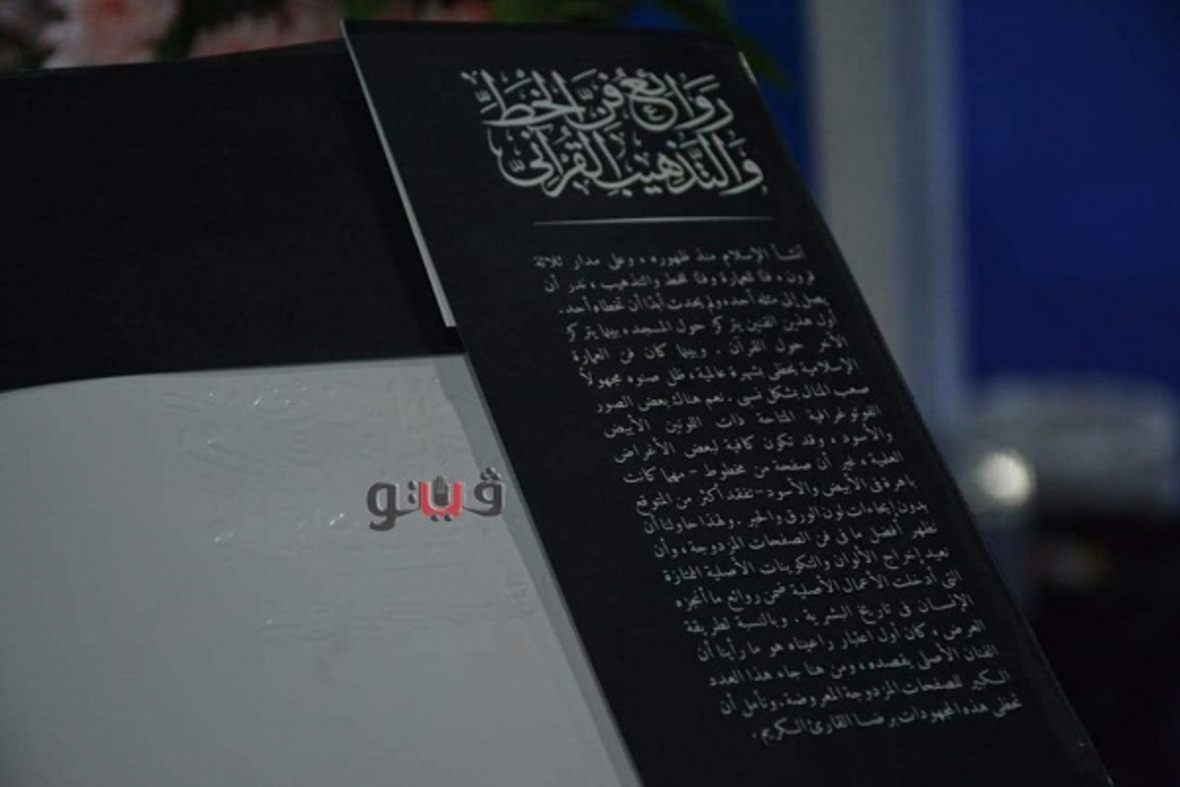 رَوَائِعُ فَنِّ الخَطِّ
وَالتَّذْهِيبِ القُرْآنِيِّ
أنشأ الإسلام منذ ظهوره، وعلى مدار ثلاثة
قرون، فنًّا للعمارة وفنًّا للخط والتذهيب، ندر أن
يصل إلى مثله أحد، ولم يحدث أبدًا أن تخطاه أحد.
أول هذين الفنين يتركز حول المسجد، بينما يتركز
الآخر حول القرآن. وبينما كان فن العمارة
الإسلامية يحظى بشهرة عالية، ظل صنوه مجهولاً
صعب المنال بشكل نسبى. نعم هناك بعض الصور
الفوتوغرافية المتاحة ذات اللونين الأبيض
والأسود، وقد تكون كافية لبعض الأغراض
العلمية، غير أن صفحة من مخطوط - مهما كانت
باهرة فى الأبيض والأسود - تفقد أكثر من المتوقع
بدون إيحاءات لون الورق والحبر. ولهذا حاولنا أن
نظهر أفضل ما فى فن الصفحات المزدوجة، وأن
نعيد إخراج الألوان والتكوينات الأصلية الممتازة
التى أدخلت الأعمال الأصلية ضمن روائع ما أنجزه
الإنسان فى تاريخ البشرية. وبالنسبة لطريقة
العرض، كان أول اعتبار راعيناه هو ما رأينا أن
الفنان الأصلى يقصده، ومن هنا جاء هذا العدد
الكبير للصفحات المزدوجة المعروضة. ونأمل أن
تحظى هذه المجهودات برضا القارئ الكريم.
ڤيتو